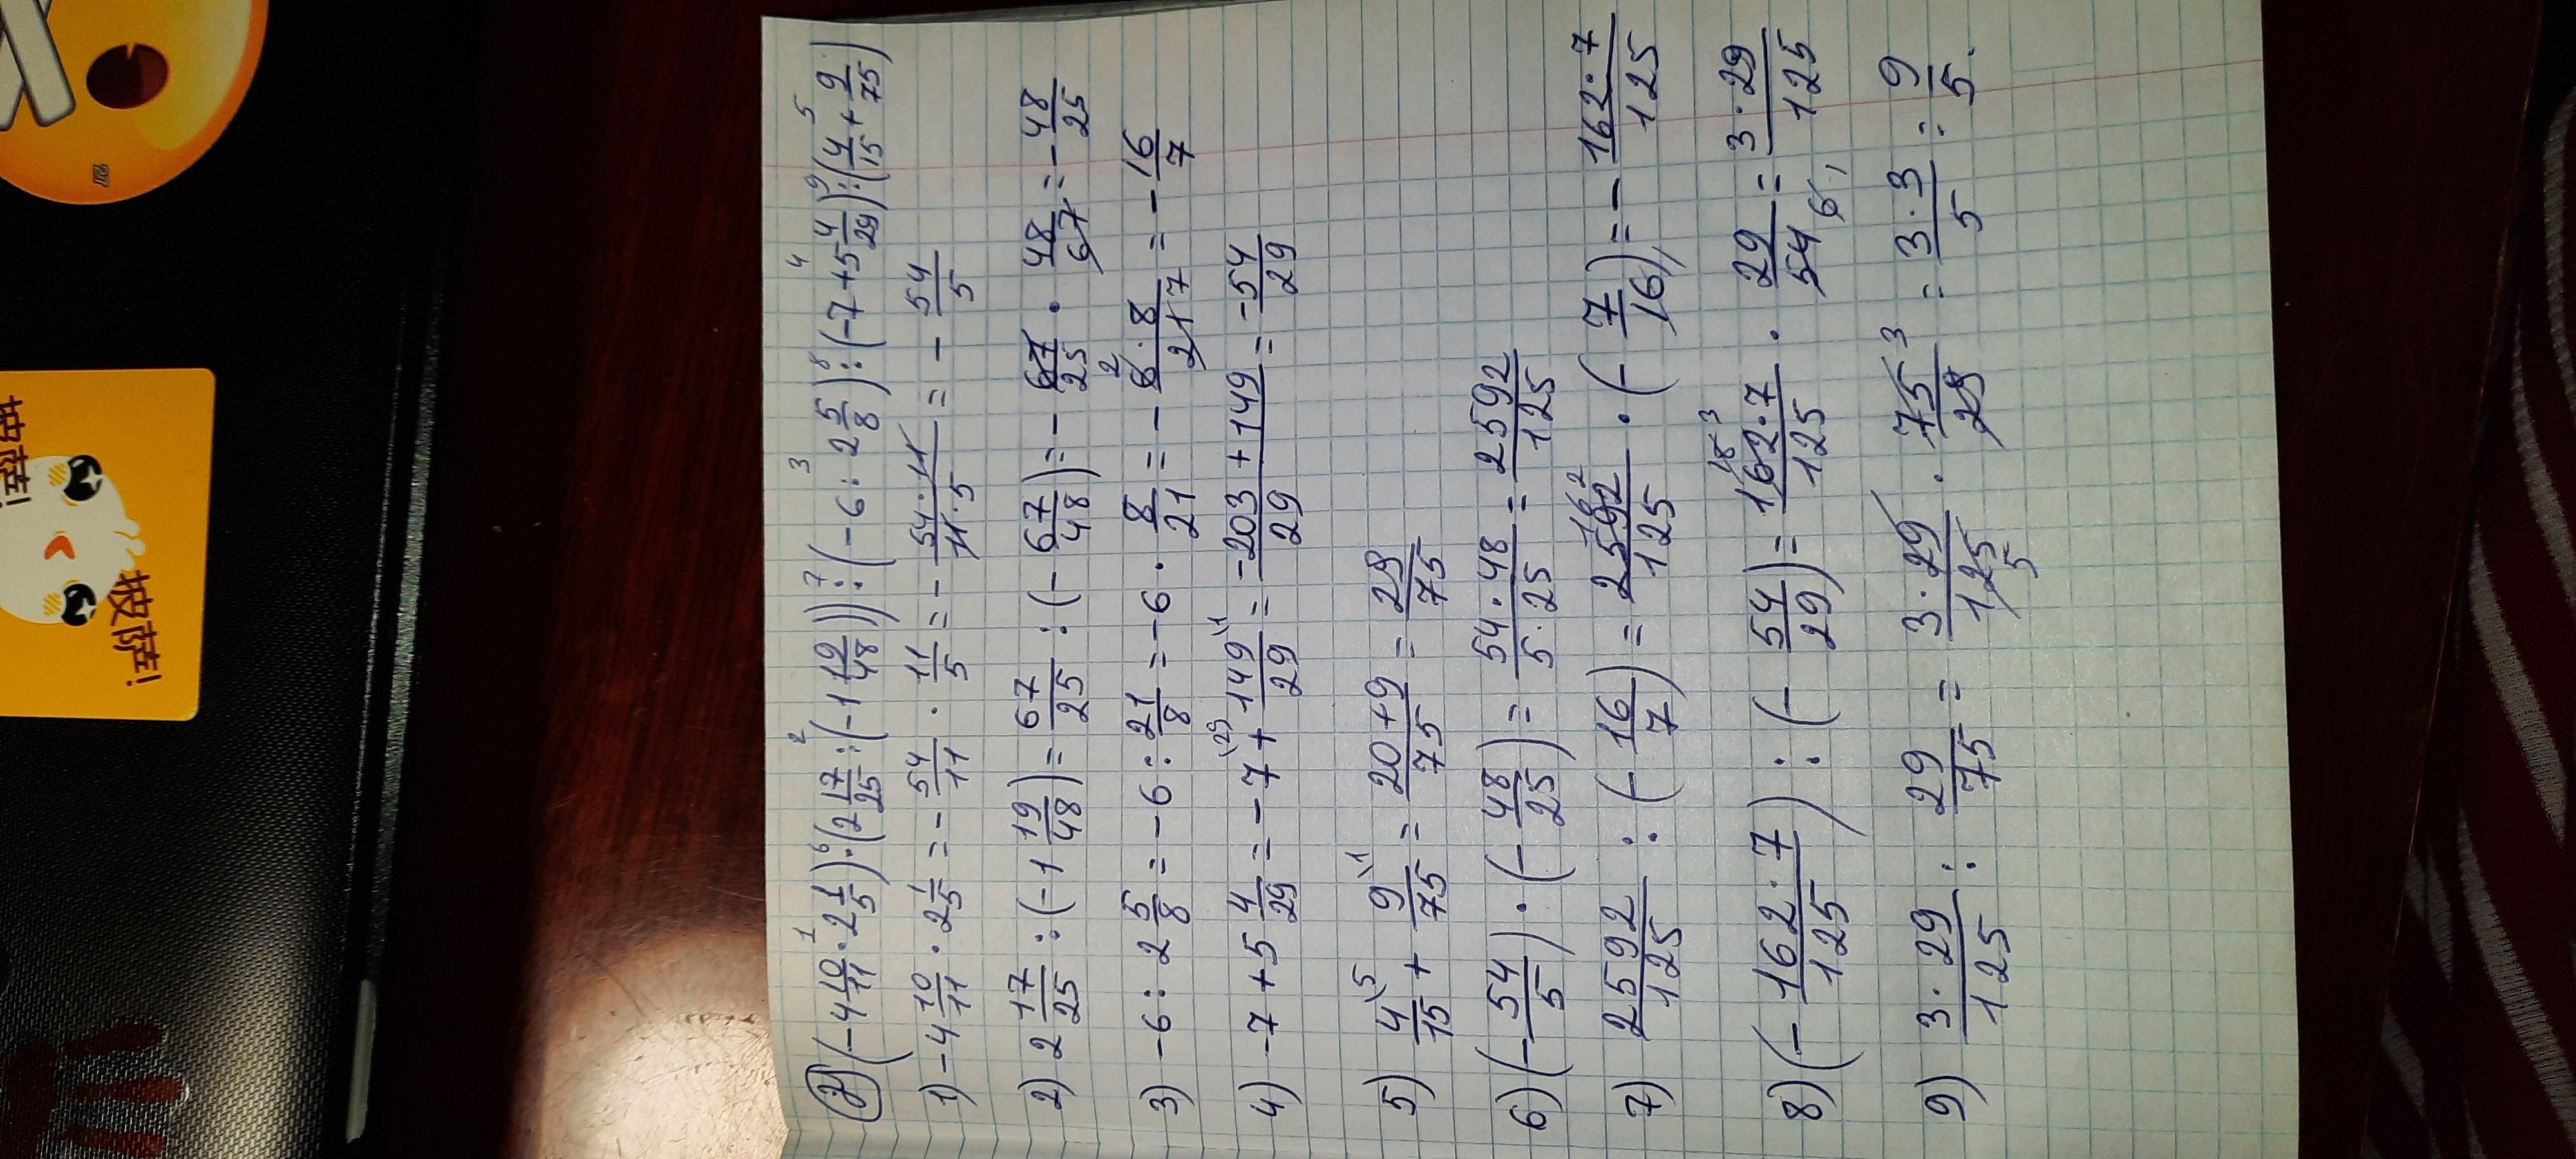 2) (-4 10/11 · 2 1/5) · (2 17/25 : (-1 19/48))) : (-6 : 2 5/8) : (-7 + 5 4/29) : (4/15 + 9/75)
1) -4 10/11 · 2 1/5 = - 54/11 · 11/5 = - 54·11/11·5 = - 54/5
2) 2 17/25 : (-1 19/48) = 67/25 : (- 67/48) = - 67/25 · 48/67 = - 48/25
3) -6 : 2 5/8 = -6 : 21/8 = -6 · 8/21 = - 6·8/21 = - 16/7
4) -7 + 5 4/29 = -7 + 149/29 = -203+149/29 = -54/29
5) 4/15 + 9/75 = 20+9/75 = 29/75
6) (- 54/5) · (- 48/25) = 54·48/5·25 = 2592/125
7) 2592/125 : (- 16/7) = 2592/125 · (- 7/16) = - 162·7/125
8) (- 162·7/125) : (- 54/29) = 162·7/125 · 29/54 = 3·29/125
9) 3·29/125 : 29/75 = 3·29/125 · 75/29 = 3·3/5 = 9/5.
坡萨!
坡萨!